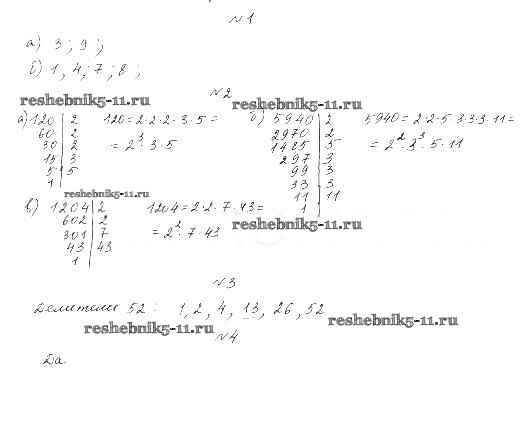 №1
а) 3; 9;
б) 1, 4; 7; 8;
№2
reshebnik5-11.ru
reshebnik5-11.ru
а) 120 | 2 120 = 2·2·2·3·5 =
60 | 2 = 2³·3·5
30 | 2
15 | 3
5 | 5
1
б) 5940 | 2 5940 = 2·2·5·3·3·3·11 =
2970 | 2 = 2²·3³·5·11
1485 | 5
297 | 3
99 | 3
33 | 3
11 | 11
1
reshebnik5-11.ru
в) 1204 | 2 1204 = 2·2·7·43 =
602 | 2 = 2²·7·43
301 | 7
43 | 43
1
reshebnik5-11.ru
№3
Делители 52: 1, 2, 4, 13, 26, 52
reshebnik5-11.ru
reshebnik5-11.ru
№4
Да.